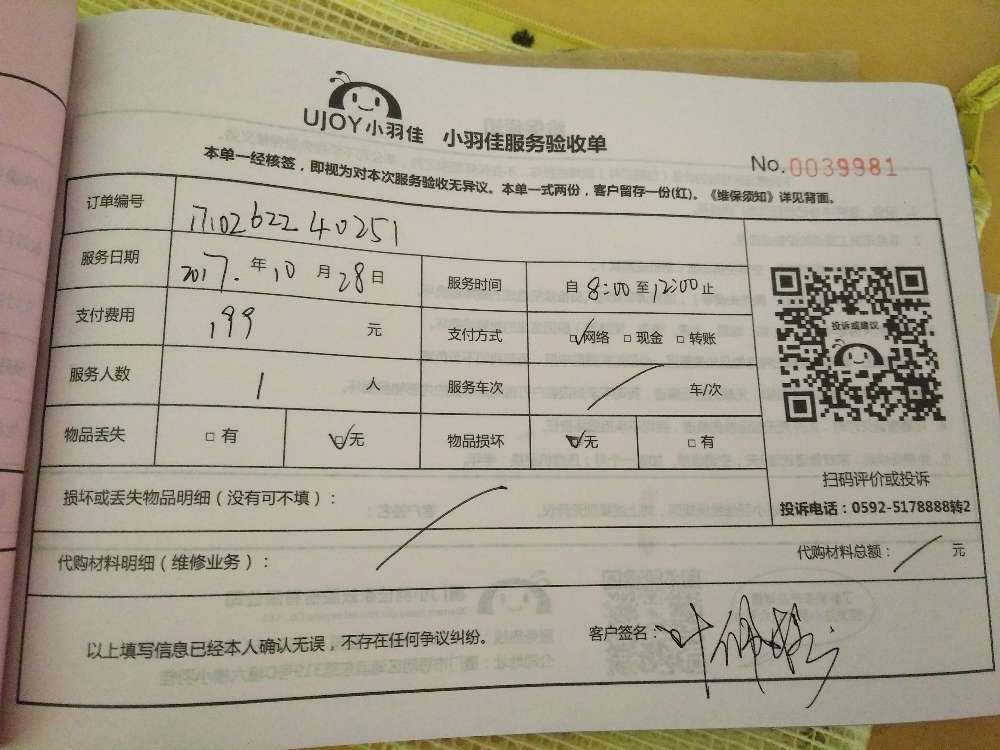 UJOY小羽佳 小羽佳服务验收单
No.0039981
本单一经核签，即视为对本次服务验收无异议。本单一式两份，客户留存一份(红)。《维保须知》详见背面。
订单编号 1710262240251
服务日期 2017.年10月28日 服务时间 自8:00至12:00止
支付费用 199元 支付方式 □网络 □现金 □转账
服务人数 1人 服务车次 车/次
物品丢失 □有 □无 物品损坏 □无 □有
投诉或建议
扫码评价或投诉
投诉电话：0592-5178888转2
损坏或丢失物品明细（没有可不填）：
代购材料明细（维修业务）： 代购材料总额： 元
以上填写信息已经本人确认无误，不存在任何争议纠纷。 客户签名：叶